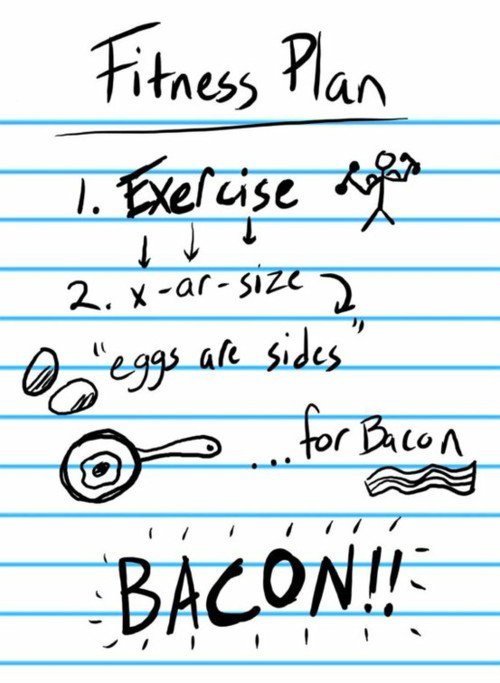 Fitness Plan
1. Exercise
2. x-ar-size
"eggs are sides"
...for Bacon
BACON!!